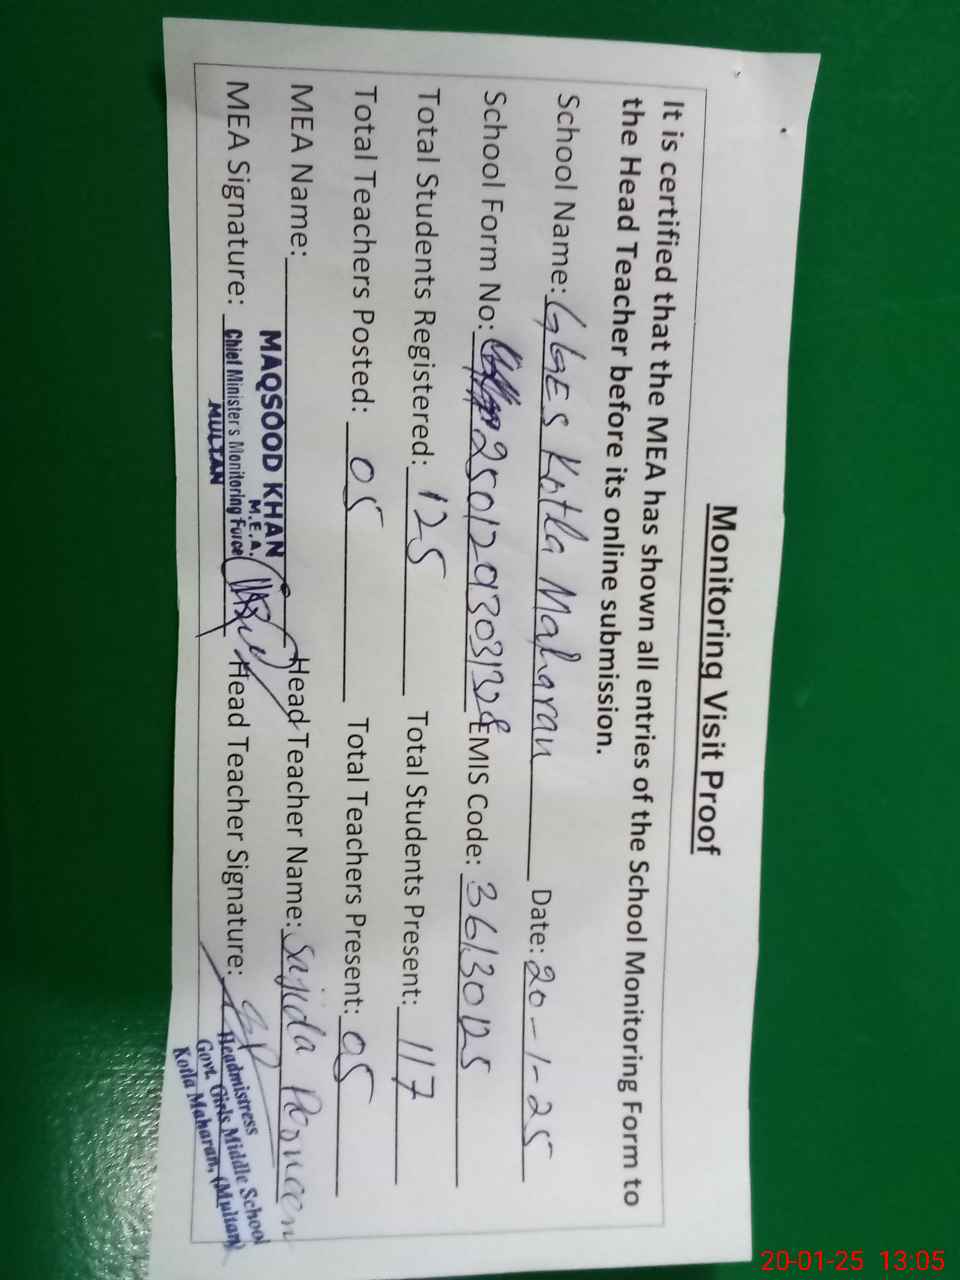 Monitoring Visit Proof
It is certified that the MEA has shown all entries of the School Monitoring Form to
the Head Teacher before its online submission.
School Name: GGES Kotla Maharan Date: 20-1-25
School Form No: EMIS Code: 36130125
Total Students Registered: 125 Total Students Present: 117
Total Teachers Posted: 05 Total Teachers Present: 05
MEA Name: MAQSOOD KHAN Head Teacher Name: Sajida Perveen
M.E.A.
MEA Signature: Chief Minister's Monitoring Force Head Teacher Signature:
MULTAN
Headmistress
Govt. Girls Middle School
Kotla Maharan, (Multan)
20-01-25 13:05